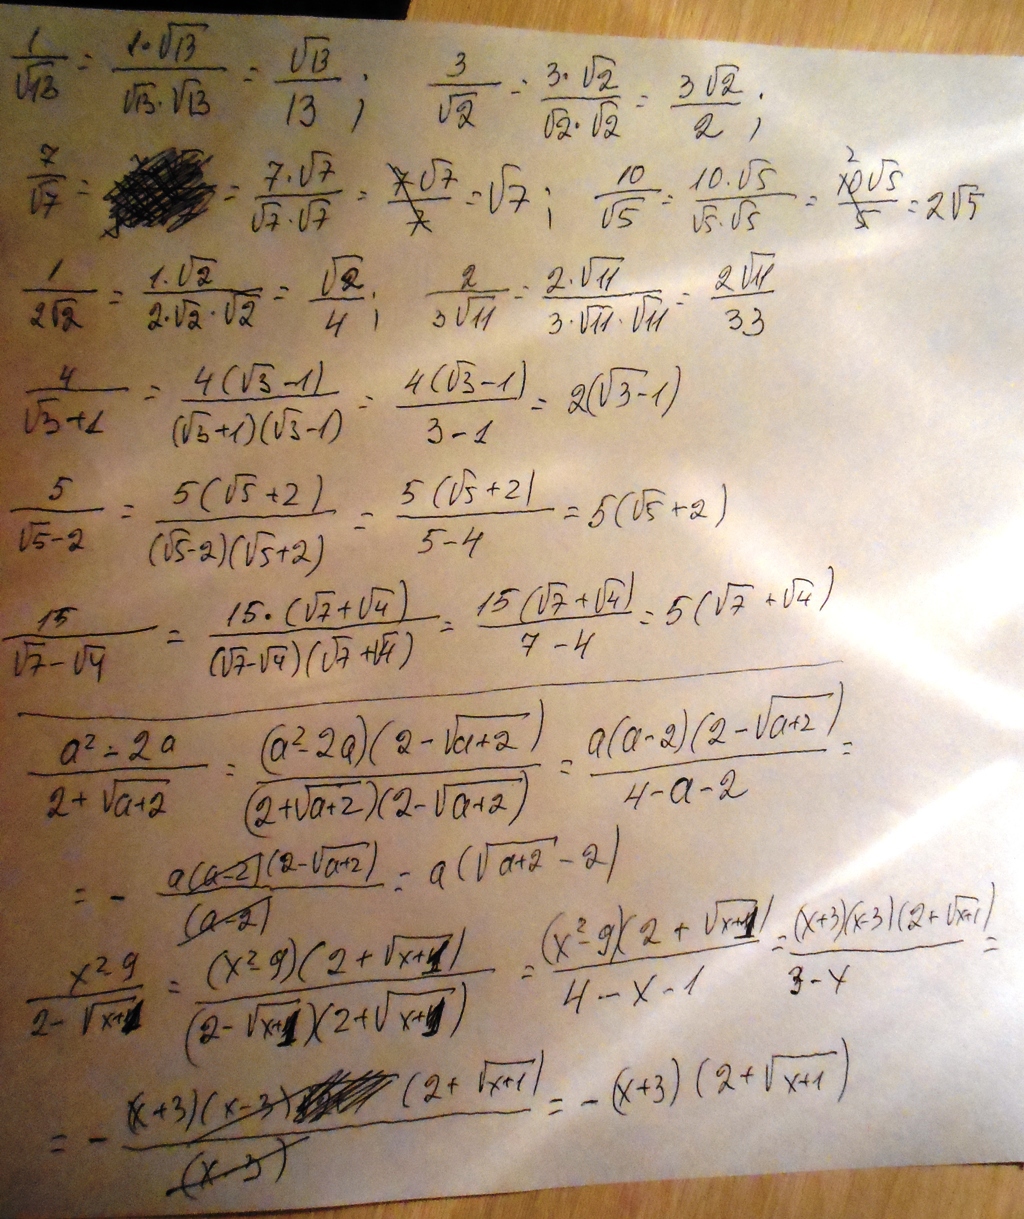 1/√13 = 1·√13/√13·√13 = √13/13 ; 3/√2 = 3·√2/√2·√2 = 3√2/2 ;
7/√7 = = 7·√7/√7·√7 = 7√7/7 = √7 ; 10/√5 = 10·√5/√5·√5 = 2 10√5/5 = 2√5
1/2√2 = 1·√2/2·√2·√2 = √2/4 ; 2/3√11 = 2·√11/3·√11·√11 = 2√11/33
4/√3+1 = 4(√3-1)/(√3+1)(√3-1) = 4(√3-1)/3-1 = 2(√3-1)
5/√5-2 = 5(√5+2)/(√5-2)(√5+2) = 5(√5+2)/5-4 = 5(√5+2)
15/√7-√4 = 15·(√7+√4)/(√7-√4)(√7+√4) = 15(√7+√4)/7-4 = 5(√7+√4)
a²-2a/2+√a+2 = (a²-2a)(2-√a+2)/(2+√a+2)(2-√a+2) = a(a-2)(2-√a+2)/4-a-2 =
= - a(a-2)(2-√a+2)/(a-2) = a(√a+2-2)
x²-9/2-√x+1 = (x²-9)(2+√x+1)/(2-√x+1)(2+√x+1) = (x²-9)(2+√x+1)/4-x-1 = (x+3)(x-3)(2+√x+1)/3-x =
= - (x+3)(x-3)(2+√x+1)/(x-3) = -(x+3)(2+√x+1)